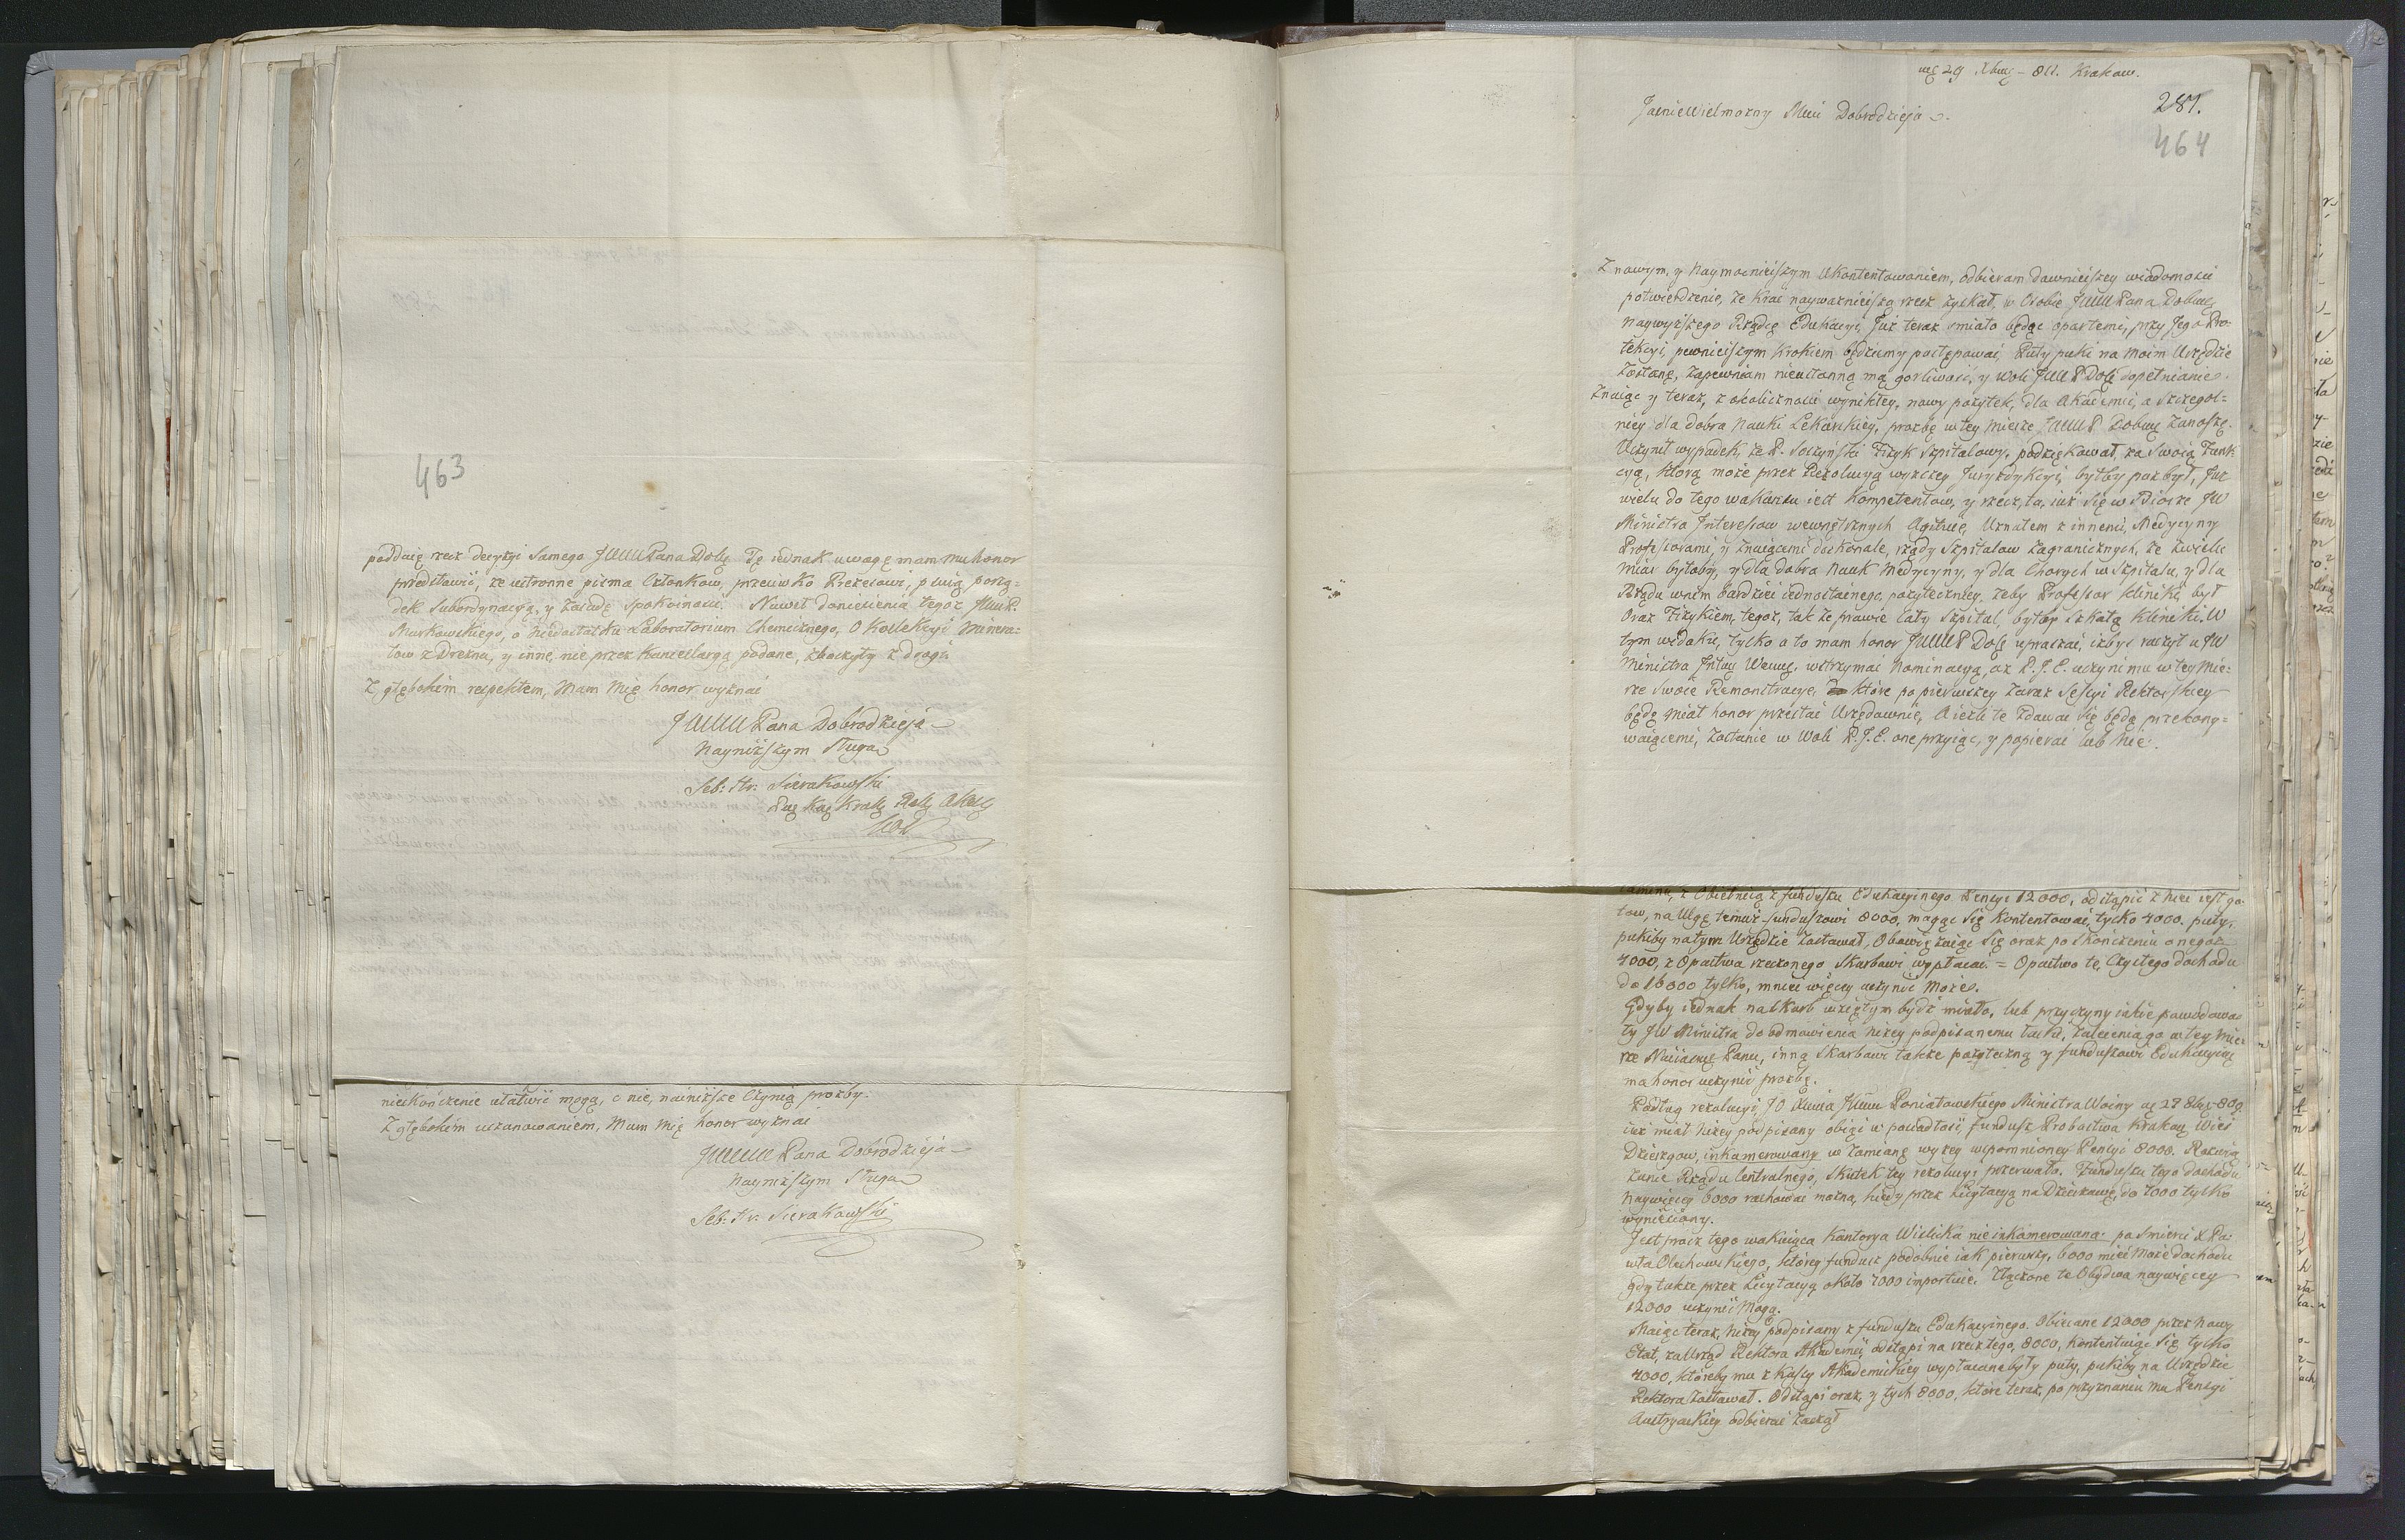 463
poddaię rzecz decyzyi Samego JWW Pana Dobę. Tę iednak uwagę mam mu honor
przedstawić, że ustronne pisma Członkow, przeciwko Prezesowi, psuią porzą=
dek Subordynacyą, y zasadę spokoinosci. Nawet doniesienia tegoż JWW P.
Markowskiego, o niedostatku Laboratorium Chemicznego, O Kollekcyi Minera=
łow z Drezna, y inne, nie przez Kancellaryą podane, zboczyły z drogi.
Z głębokim respektem, Mam Mię honor wyznać
JWWW Pana Dobrodzieja
Naynizszym Sługa
Seb: Hr. Sierakowski
nieskończenie ułatwić mogą, o nie, nainizsze Czynią prozby.
Z głębokim uszanowaniem, Mam Mię honor wyznać
JWWW Pana Dobrodzieja
Naynizszym Sługa
Seb: Hr. Sierakowski
29 Xbra – 811. Krakow.
281.
JasnieWielmożny Mui Dobrodzieja
464
Z nowym, y Naymocnieiszym Ukontentowaniem, odbieram dawnieiszey wiadomosci
potwierdzenie, że Kray nayważnieiszą rzecz zyskał, w Osobie JWW Pana Dobrę
Naywyższego Rządcę Edukacyi, Już teraz smiało będąc opartemi, przy Jego Pro=
tekcyi, pewnieiszym krokiem będziemy postępować, Puty puki na moim Urzędzie
Zostanę, Zapewniam nieustanną mą gorliwość, y woli JWW P Dobę dopełnianie.
Znaiąc y teraz, z okolicznosci wynikłey, nowy pożytek, dla Akademii, a szczegol=
niey dla dobra Nauki Lekarskiey, prozbę w tey mierze JWW P Dobrę zanoszę.
Uczynił wypadek, że P. Soczyński Fizyk Szpitalowy, podziękował, za Swoią Funk
cyą, ktorą może przez Rezolucyą wyższey Juryzdykcyi, byłby pozbył, Już
wielu do tego wakansu iest kompetentow, y rzecz ta, iuż się w Biorze JW
Ministra Interessow wewnętrznych Agituie, Uznałem z innemi, Medycyny
Professorami, y znaiącemi doskonale, rządy Szpitalow zagranicznych, że z wielu
miar byłoby, y dla dobra Nauk Medycyny, y dla Chorych w Szpitalu, y dla
Rządu w nim bardziei iednostainego, pożyteczniey, żeby Professor kliniki, był
Oraz Fizykiem, tegoż, tak że prawie cały Szpital, byłby szkołą Kliniki. W
tym widoku, tylko o to mam honor JWW P Dobę upraszać, iżbyś raczył u JW
Ministra wstrzymać Nominacyą, aż P. J. E. uczyni mu w tey Mie=
rze Swoie Remonstracye, które po pierwszey zaraz Sessyi Rektorskiey
będę miał honor przesłać Urzędownie, A ieżeli te zdawać się będą przekony=
waiącemi, Zostanie w Woli P. J. E. one przyiąć, y popierać lub Nie.
z Obietnicą z funduszu Edukacyinego Pensyi 12000, odstąpić z niei iest go
tow, na Ulgę temuż funduszowi 8000, mogąc się kontentować, tylko 4000. puty,
pukiby na tym Urzędzie zostawał, Obowięzuiąc się oraz po skończeniu onegoż
4000, z Opactwa rzeczonego Skarbowi wypłacać = Opactwo te, Czystego dochodu
do 16000 tylko, mniei więcey uczynić Może.
Gdyby iednak na skarb wziętym bydź miało, lub przyczyny iakie powodowa
ły JW Ministra do odmowienia niżey podpisanemu łaski, zalecenia go w tey Mie
rze Nuiasnę Panu, inną Skarbowi także pożyteczną y funduszowi Edukacyinę
ma honor uczynić prozbę.
Podług rezolucyi, JO Xięcia JWW Poniatowskiego Ministra Woiny 809
iuż miał niżey podpisany obiąć w posiadłość, fundusz Probostwa Krakow Wieś
Dzierzgow, inkamerowaną w zamianę wyżey wspomnioney Pensyi 8000. Rozwią
zanie Rządu Centralnego, skutek tey rezolucyi przerwało. Funduszu tego dochodu
naywięcey 6000 rachować można, kiedy przez Licytacyą na Dzierżawę, do 7000 tylko
wyniesiony.
Jest procz tego wakuiąca Kantorya Wislicka nie inkamerowana, po smierci X Pa
wła Olechowskiego, ktorey fundusz podobnie iak pierwszy, 6000 mieć może dochodu
gdy także przez Licytacyą około 7000 importuie. Złączone te Obydwa naywięcey
12000 uczynić Mogą.
Maiąc teraz, niżey podpisany z funduszu Edukacyinego. Obiecane 12000 przez nowy
Etat, za Urząd Rektora Akademii, odstąpi na rzecz tego, 8000, kontentuiąc się tylko
4000, któreby mu z Kassy Akademickiey wypłacane były puty, pukiby na Urzędzie
Rektora Zostawał. Odstąpi oraz, y tych 8000, które teraz, po przyznaniu mu Pensyi
Austryackiey odbierać zaczął